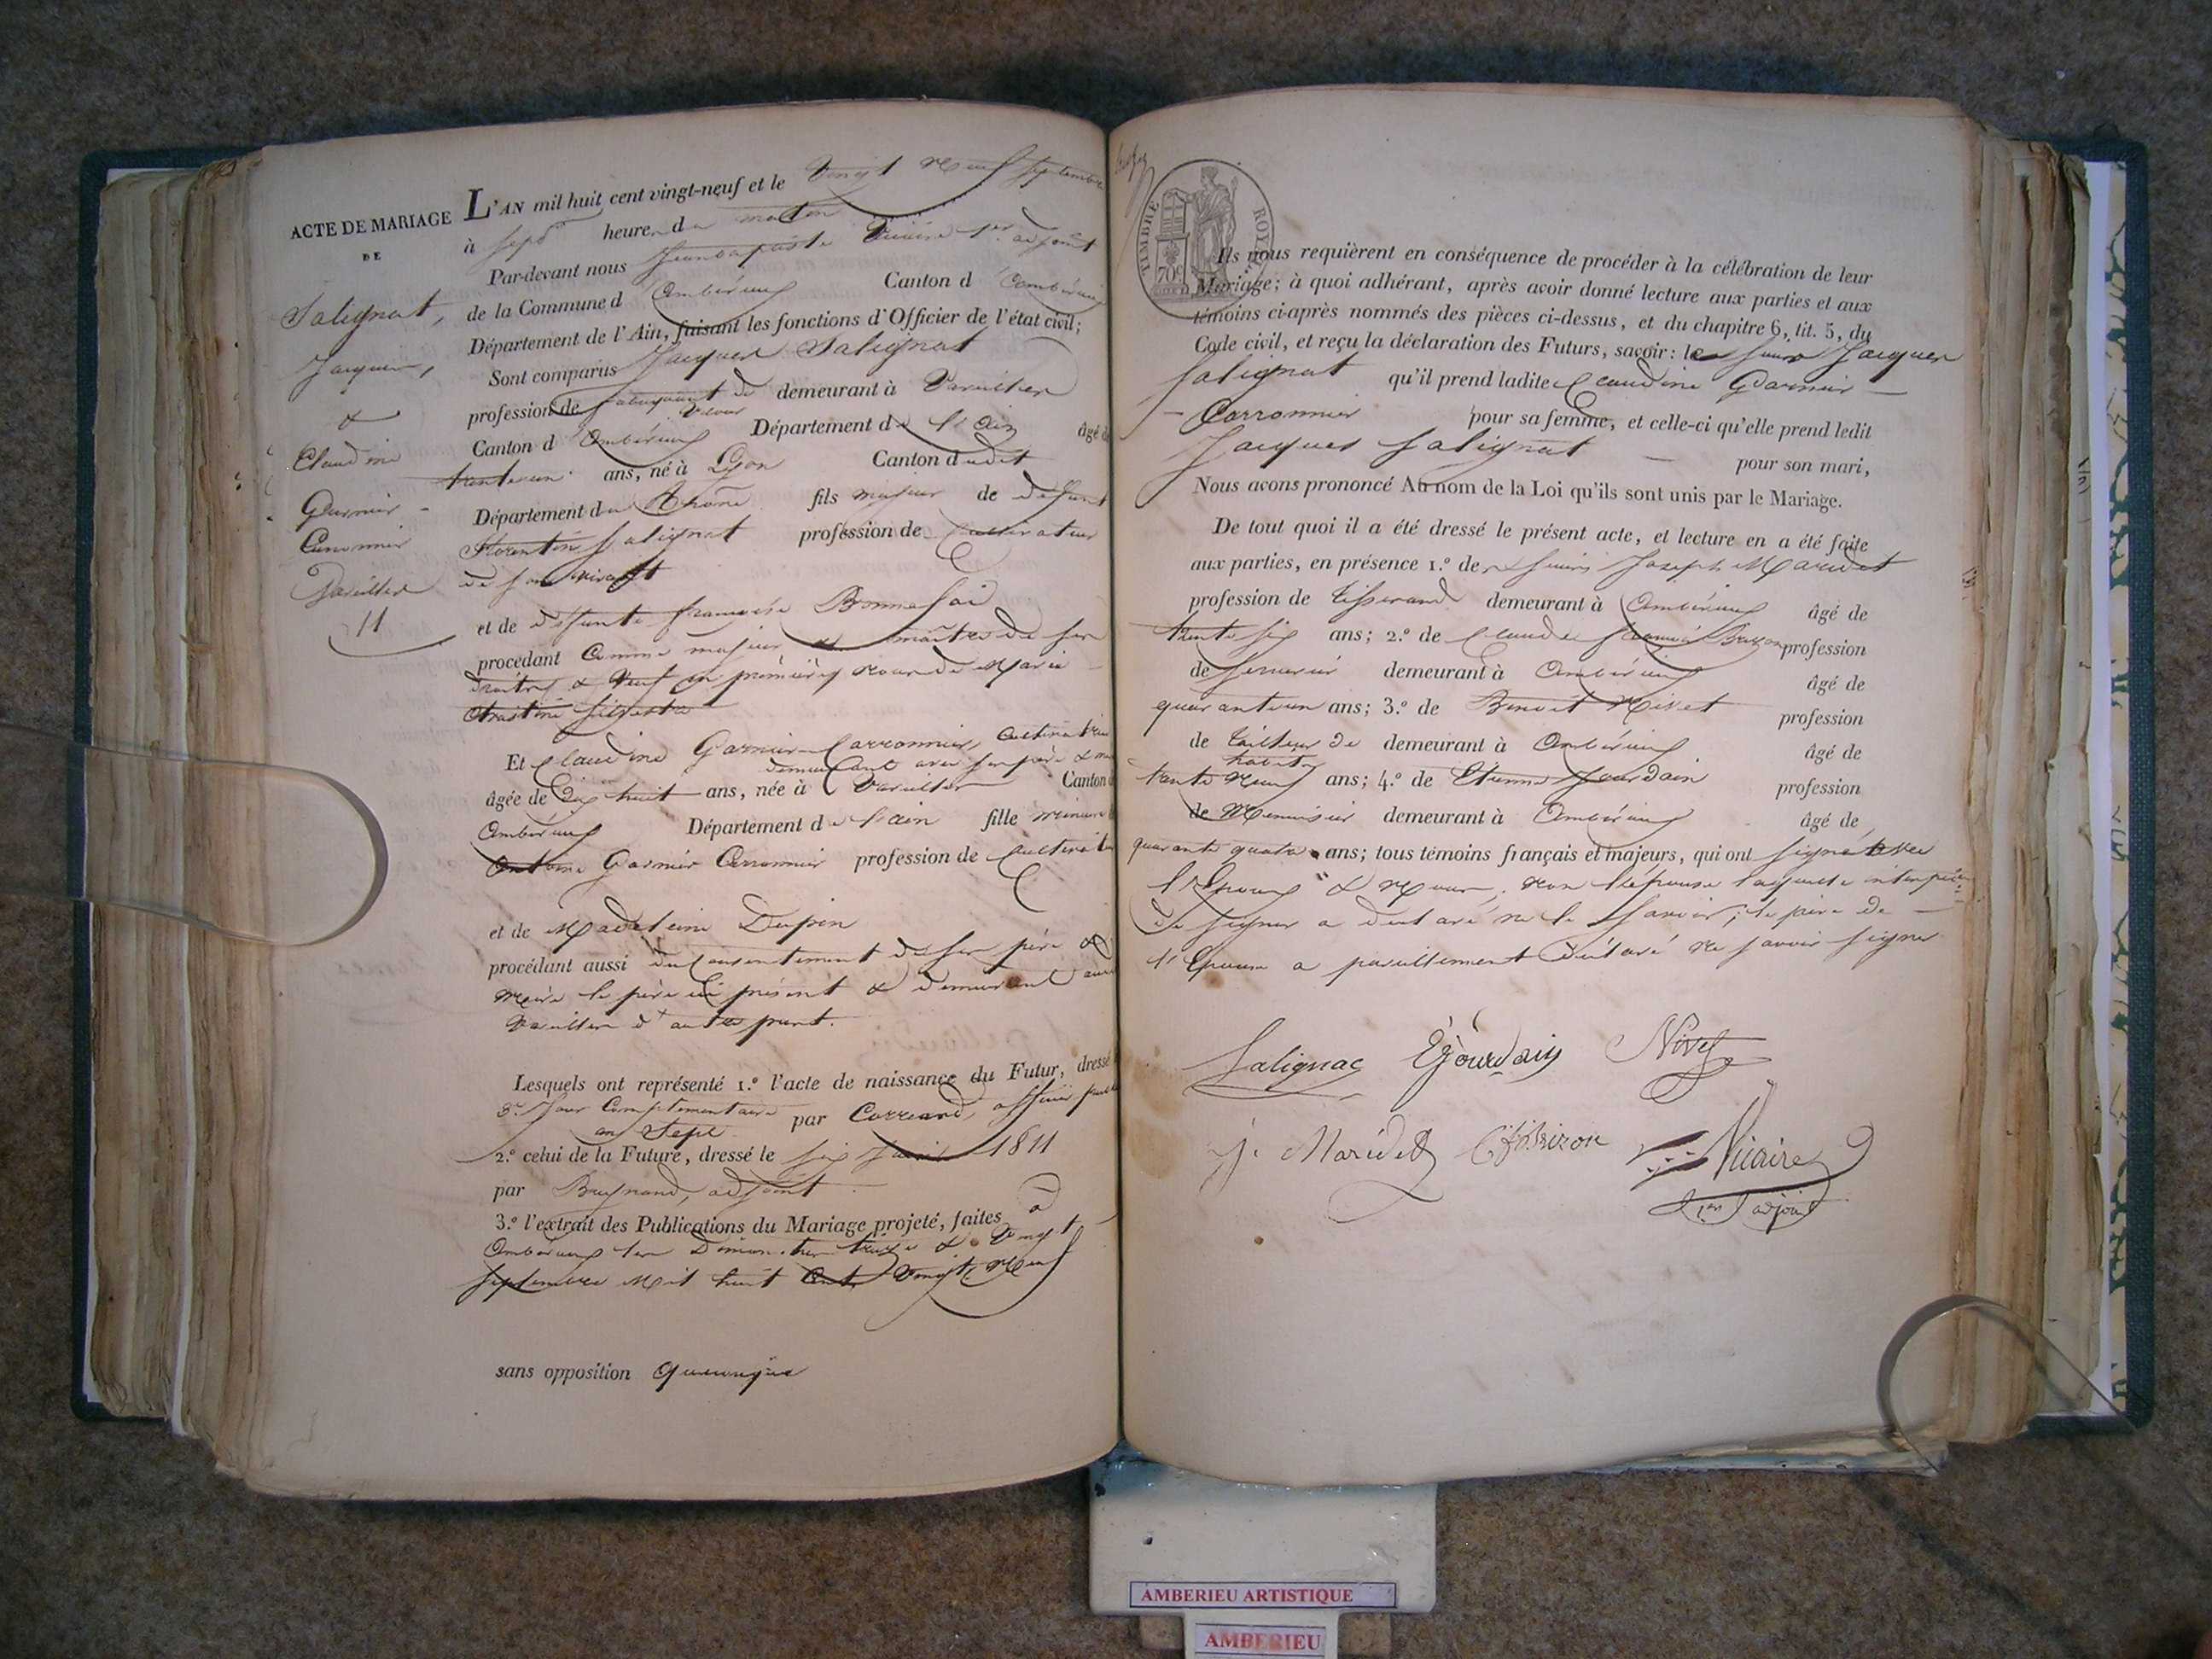 ACTE DE MARIAGE
DE
Salignat,
Jacques,
&
Claudine
Garnier -
Carronnier
Vareilles
11
L'AN mil huit cent vingt-neuf et le Vingt Neuf Septembre
à sept heures du matin
Par-devant nous Jeanbaptiste Vicaire 1er adjoint
de la Commune d'Ambérieux Canton d'Ambérieux
Département de l'Ain, faisant les fonctions d'Officier de l'état civil;
Sont comparus Jacques Salignat
profession de fabriquant de velour demeurant à Vareilles
Canton d'Ambérieux Département de l'ain âgé de
trente un ans, né à Lyon Canton dudit
Département du Rhône fils majeur de défunt
Florentin Salignat profession de Cultivateur
de son vivant
et de défunte françoise Bonnefoi
procédant Comme majeur & maître de ses
droits & Veuf en premières noces de Marie
Et Claudine Garnier-Carronnier, Cultivatrice
demeurant avec ses père & mère
âgée de Dix huit ans, née à Vareilles Canton d
Ambérieux Département de l'ain fille mineure
Antoine Garnier Carronnier profession de Cultivateur
et de Madeleine Dupin
procédant aussi du Consentement de ses père &
Mère le père ici présent & demeurant aussi
Vareilles d'autre part.
Lesquels ont représenté 1.º l'acte de naissance du Futur, dressé
3e Jour Complémentaire an Sept par officier public
2.º celui de la Future, dressé le six 1811
par adjoint
3.º l'extrait des Publications du Mariage projeté, faites à
Ambérieux les Dimanches treize & Vingt
Septembre Mil huit Cent Vingt Neuf
sans opposition quelconque
TIMBRE ROYAL
70c
Ils nous requièrent en conséquence de procéder à la célébration de leur
Mariage; à quoi adhérant, après avoir donné lecture aux parties et aux
témoins ci-après nommés des pièces ci-dessus, et du chapitre 6, tit. 5, du
Code civil, et reçu la déclaration des Futurs, savoir: le sieur Jacques
Salignat qu'il prend ladite Claudine Garnier -
- Carronnier pour sa femme, et celle-ci qu'elle prend ledit
Jacques Salignat - pour son mari,
Nous avons prononcé Au nom de la Loi qu'ils sont unis par le Mariage.
De tout quoi il a été dressé le présent acte, et lecture en a été faite
aux parties, en présence 1.º des sieurs Joseph Maridet
profession de tisserand demeurant à Ambérieux âgé de
trente six ans; 2.º de Claude profession
de serrurier demeurant à Ambérieux âgé de
quarante un ans; 3.º de Benoit Nivet profession
de tailleur de habits demeurant à Ambérieux âgé de
trente Neuf ans; 4.º de Etienne Jourdain profession
de Menuisier demeurant à Ambérieux âgé de
quarante quatre ans; tous témoins français et majeurs, qui ont signé avec
l'Epoux & Nous, non l'épouse laquelle interpelée
de signer a déclaré ne le savoir; le père de -
l'Epouse a pareillement déclaré ne savoir signer
Salignac EJourdain Nivet
J. Maridet Vicaire
1er adjoint
AMBERIEU ARTISTIQUE
AMBERIEU